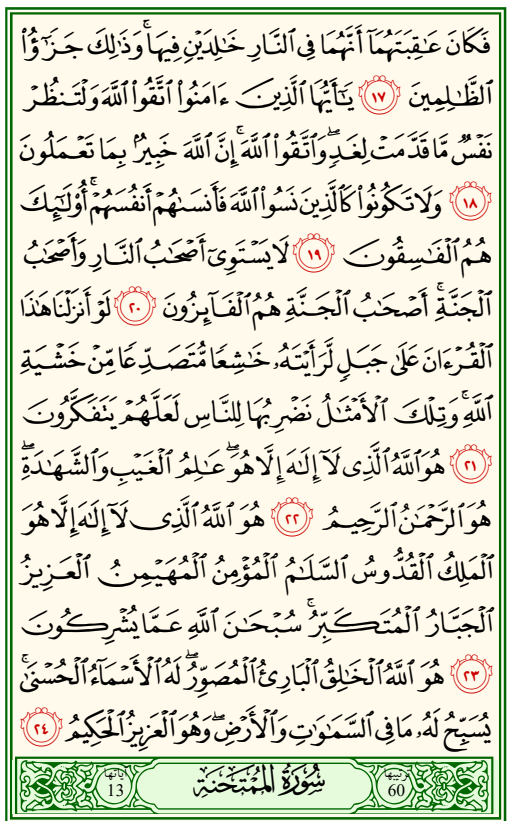 فَكَانَ عَٰقِبَتَهُمَآ أَنَّهُمَا فِي ٱلنَّارِ خَٰلِدَيْنِ فِيهَاۚ وَذَٰلِكَ جَزَٰٓؤُاْ
ٱلظَّٰلِمِينَ ١٧ يَٰٓأَيُّهَا ٱلَّذِينَ ءَامَنُواْ ٱتَّقُواْ ٱللَّهَ وَلْتَنظُرْ
نَفْسٌ مَّا قَدَّمَتْ لِغَدٍۖ وَٱتَّقُواْ ٱللَّهَۚ إِنَّ ٱللَّهَ خَبِيرُۢ بِمَا تَعْمَلُونَ
١٨ وَلَا تَكُونُواْ كَٱلَّذِينَ نَسُواْ ٱللَّهَ فَأَنسَىٰهُمْ أَنفُسَهُمْۚ أُوْلَٰٓئِكَ
هُمُ ٱلْفَٰسِقُونَ ١٩ لَا يَسْتَوِيٓ أَصْحَٰبُ ٱلنَّارِ وَأَصْحَٰبُ
ٱلْجَنَّةِۚ أَصْحَٰبُ ٱلْجَنَّةِ هُمُ ٱلْفَآئِزُونَ ٢٠ لَوْ أَنزَلْنَا هَٰذَا
ٱلْقُرْءَانَ عَلَىٰ جَبَلٍ لَّرَأَيْتَهُۥ خَٰشِعًا مُّتَصَدِّعًا مِّنْ خَشْيَةِ
ٱللَّهِۚ وَتِلْكَ ٱلْأَمْثَٰلُ نَضْرِبُهَا لِلنَّاسِ لَعَلَّهُمْ يَتَفَكَّرُونَ
٢١ هُوَ ٱللَّهُ ٱلَّذِي لَآ إِلَٰهَ إِلَّا هُوَۖ عَٰلِمُ ٱلْغَيْبِ وَٱلشَّهَٰدَةِۖ
هُوَ ٱلرَّحْمَٰنُ ٱلرَّحِيمُ ٢٢ هُوَ ٱللَّهُ ٱلَّذِي لَآ إِلَٰهَ إِلَّا هُوَ
ٱلْمَلِكُ ٱلْقُدُّوسُ ٱلسَّلَٰمُ ٱلْمُؤْمِنُ ٱلْمُهَيْمِنُ ٱلْعَزِيزُ
ٱلْجَبَّارُ ٱلْمُتَكَبِّرُۚ سُبْحَٰنَ ٱللَّهِ عَمَّا يُشْرِكُونَ
٢٣ هُوَ ٱللَّهُ ٱلْخَٰلِقُ ٱلْبَارِئُ ٱلْمُصَوِّرُۖ لَهُ ٱلْأَسْمَآءُ ٱلْحُسْنَىٰۚ
يُسَبِّحُ لَهُۥ مَا فِي ٱلسَّمَٰوَٰتِ وَٱلْأَرْضِۖ وَهُوَ ٱلْعَزِيزُ ٱلْحَكِيمُ ٢٤
ترتيبها 60 سُورَةُ المُمْتَحنَة آياتها 13